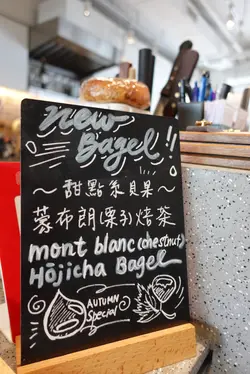 new
Bagel!!
～甜點系貝果～
蒙布朗栗子焙茶
mont blanc (chestnut)
Hōjicha Bagel
AUTUMN
Special